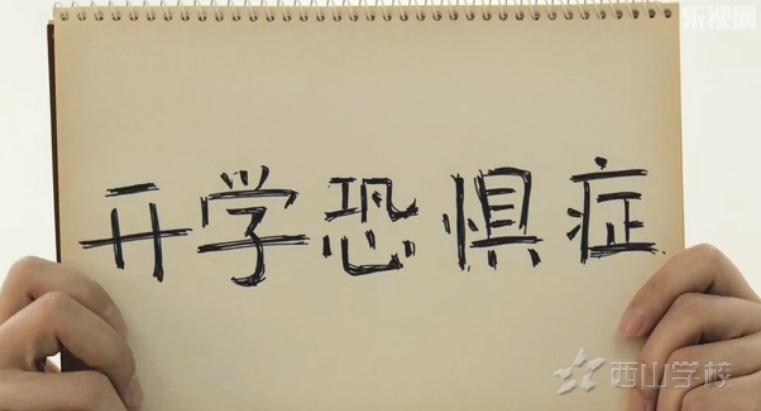 乐视网
开学恐惧症
西山学校